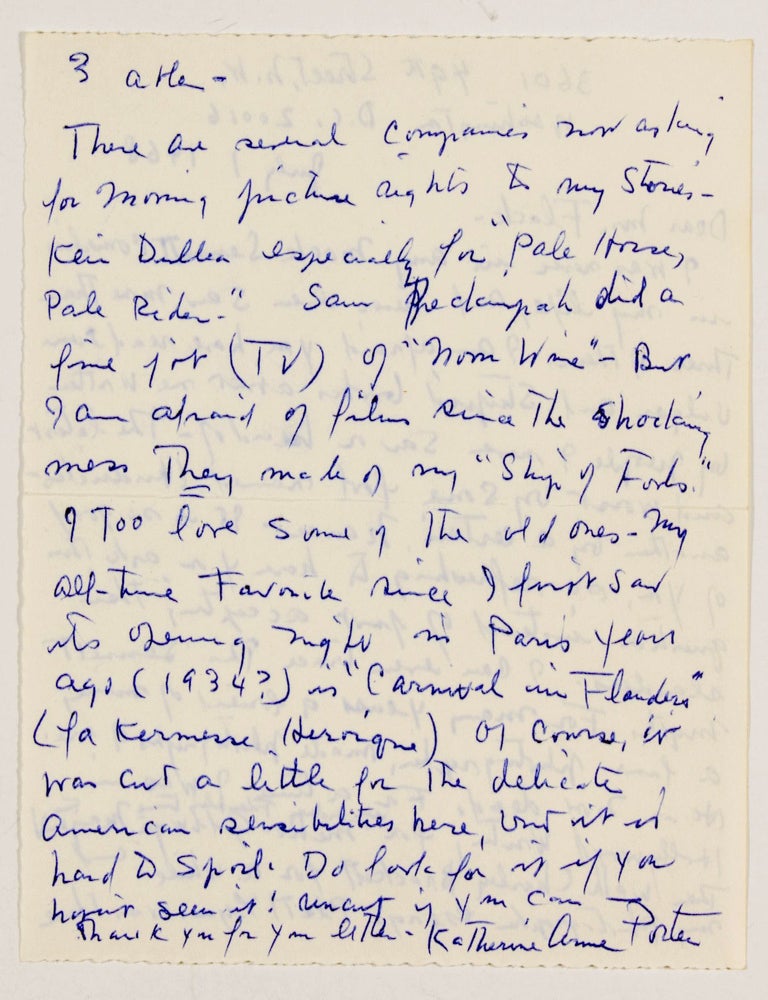 3
There are several Companies now asking
for moving picture rights to my Stories-
Keir Dullea especially for "Pale Horse,
Pale Rider." Sam Peckinpah did a
fine job (TV) of "Noon Wine"- But,
I am afraid of films since the shocking
mess They made of my "Ship of Fools."
I Too love some of the old ones- My
all-time Favorite since I first saw
its opening night in Paris years
ago (1934?) is "Carnival in Flanders"
(La Kermesse Heroique) Of course, it
was cut a little for the delicate
American sensibilities here, but it is
hard to Spoil. Do look for it if you
haven't seen it! uncut if you can -
Thank you for your letter - Katherine Anne Porter